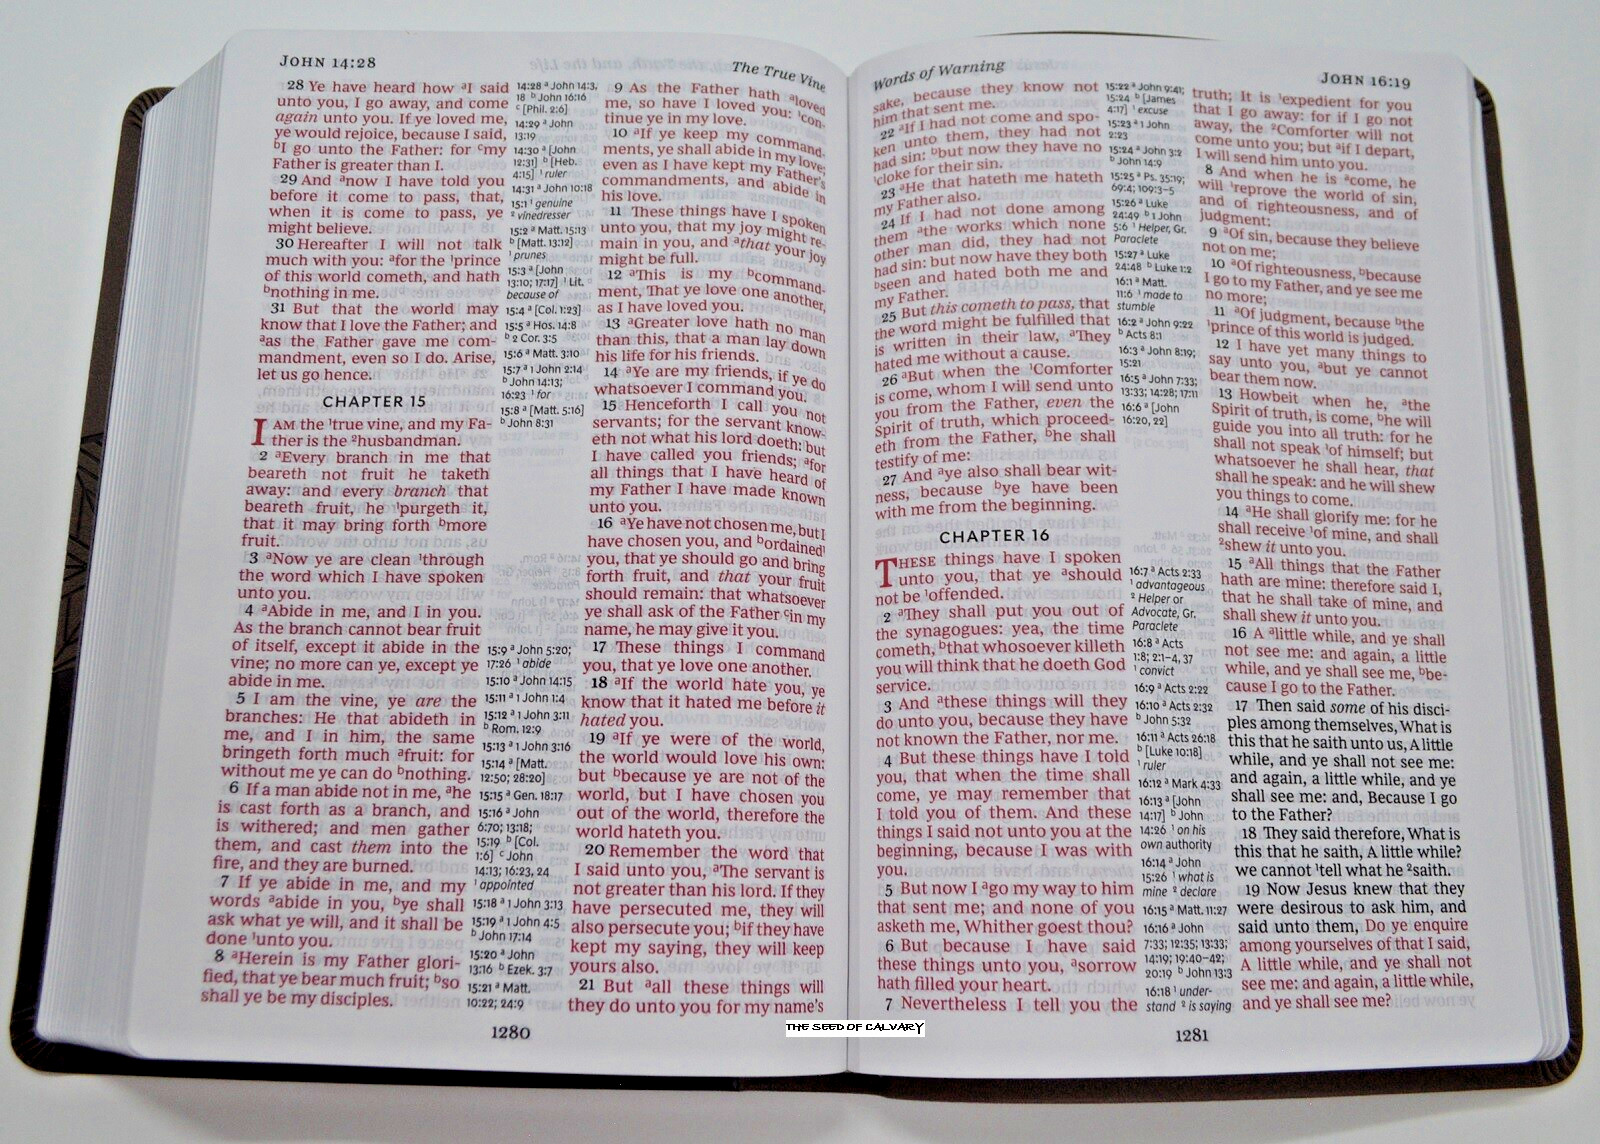 JOHN 14:28
The True Vine
28 Ye have heard how ᵃI said
unto you, I go away, and come
again unto you. If ye loved me,
ye would rejoice, because I said,
ᵇI go unto the Father: for ᶜmy
Father is greater than I.
29 And ᵃnow I have told you
before it come to pass, that,
when it is come to pass, ye
might believe.
30 Hereafter I will not talk
much with you: ᵃfor the ¹prince
of this world cometh, and hath
ᵇnothing in me.
31 But that the world may
know that I love the Father; and
ᵃas the Father gave me com-
mandment, even so I do. Arise,
let us go hence.
CHAPTER 15
I AM the ¹true vine, and my Fa-
ther is the ²husbandman.
2 ᵃEvery branch in me that
beareth not fruit he taketh
away: and every branch that
beareth fruit, he ¹purgeth it,
that it may bring forth ᵇmore
fruit.
3 ᵃNow ye are clean ¹through
the word which I have spoken
unto you.
4 ᵃAbide in me, and I in you.
As the branch cannot bear fruit
of itself, except it abide in the
vine; no more can ye, except ye
abide in me.
5 I am the vine, ye are the
branches: He that abideth in
me, and I in him, the same
bringeth forth much ᵃfruit: for
without me ye can do ᵇnothing.
6 If a man abide not in me, ᵃhe
is cast forth as a branch, and
is withered; and men gather
them, and cast them into the
fire, and they are burned.
7 If ye abide in me, and my
words ᵃabide in you, ᵇye shall
ask what ye will, and it shall be
done ¹unto you.
8 ᵃHerein is my Father glori-
fied, that ye bear much fruit; ᵇso
shall ye be my disciples.
14:28 ᵃ John 14:3,
18 ᵇ John 16:16
ᶜ [Phil. 2:6]
14:29 ᵃ John
13:19
14:30 ᵃ [John
12:31] ᵇ [Heb.
4:15] ¹ ruler
14:31 ᵃ John 10:18
15:1 ¹ genuine
² vinedresser
15:2 ᵃ Matt. 15:13
ᵇ [Matt. 13:12]
¹ prunes
15:3 ᵃ [John
13:10; 17:17] ¹ Lit.
because of
15:4 ᵃ [Col. 1:23]
15:5 ᵃ Hos. 14:8
ᵇ 2 Cor. 3:5
15:6 ᵃ Matt. 3:10
15:7 ᵃ 1 John 2:14
ᵇ John 14:13;
16:23 ¹ for
15:8 ᵃ [Matt. 5:16]
ᵇ John 8:31
15:9 ᵃ John 5:20;
17:26 ¹ abide
15:10 ᵃ John 14:15
15:11 ᵃ 1 John 1:4
15:12 ᵃ 1 John 3:11
ᵇ Rom. 12:9
15:13 ᵃ 1 John 3:16
15:14 ᵃ [Matt.
12:50; 28:20]
15:15 ᵃ Gen. 18:17
15:16 ᵃ John
6:70; 13:18;
15:19 ᵇ [Col.
1:6] ᶜ John
14:13; 16:23, 24
¹ appointed
15:18 ᵃ 1 John 3:13
15:19 ᵃ 1 John 4:5
ᵇ John 17:14
15:20 ᵃ John
13:16 ᵇ Ezek. 3:7
15:21 ᵃ Matt.
10:22; 24:9
9 As the Father hath ᵃloved
me, so have I loved you: ¹con-
tinue ye in my love.
10 ᵃIf ye keep my command-
ments, ye shall abide in my love;
even as I have kept my Father's
commandments, and abide in
his love.
11 These things have I spoken
unto you, that my joy might re-
main in you, and ᵃthat your joy
might be full.
12 ᵃThis is my ᵇcommand-
ment, That ye love one another,
as I have loved you.
13 ᵃGreater love hath no man
than this, that a man lay down
his life for his friends.
14 ᵃYe are my friends, if ye do
whatsoever I command you.
15 Henceforth I call you not
servants; for the servant know-
eth not what his lord doeth: but
I have called you friends; ᵃfor
all things that I have heard of
my Father I have made known
unto you.
16 ᵃYe have not chosen me, but I
have chosen you, and ᵇordained¹
you, that ye should go and bring
forth fruit, and that your fruit
should remain: that whatsoever
ye shall ask of the Father ᶜin my
name, he may give it you.
17 These things I command
you, that ye love one another.
18 ᵃIf the world hate you, ye
know that it hated me before it
hated you.
19 ᵃIf ye were of the world,
the world would love his own:
but ᵇbecause ye are not of the
world, but I have chosen you
out of the world, therefore the
world hateth you.
20 Remember the word that
I said unto you, ᵃThe servant is
not greater than his lord. If they
have persecuted me, they will
also persecute you; ᵇif they have
kept my saying, they will keep
yours also.
21 But ᵃall these things will
they do unto you for my name's
1280
Words of Warning
JOHN 16:19
sake, because they know not
him that sent me.
22 ᵃIf I had not come and spo-
ken unto them, they had not
had sin: ᵇbut now they have no
¹cloke for their sin.
23 ᵃHe that hateth me hateth
my Father also.
24 If I had not done among
them ᵃthe works which none
other man did, they had not
had sin: but now have they both
ᵇseen and hated both me and
my Father.
25 But this cometh to pass, that
the word might be fulfilled that
is written in their law, ᵃThey
hated me without a cause.
26 ᵃBut when the ¹Comforter
is come, whom I will send unto
you from the Father, even the
Spirit of truth, which proceed-
eth from the Father, ᵇhe shall
testify of me:
27 And ᵃye also shall bear wit-
ness, because ᵇye have been
with me from the beginning.
CHAPTER 16
THESE things have I spoken
unto you, that ye ᵃshould
not be ¹offended.
2 ᵃThey shall put you out of
the synagogues: yea, the time
cometh, ᵇthat whosoever killeth
you will think that he doeth God
service.
3 And ᵃthese things will they
do unto you, because they have
not known the Father, nor me.
4 But these things have I told
you, that when the time shall
come, ye may remember that
I told you of them. And these
things I said not unto you at the
beginning, because I was with
you.
5 But now I ᵃgo my way to him
that sent me; and none of you
asketh me, Whither goest thou?
6 But because I have said
these things unto you, ᵃsorrow
hath filled your heart.
7 Nevertheless I tell you the
15:22 ᵃ John 9:41;
15:24 ᵇ [James
4:17] ¹ excuse
15:23 ᵃ 1 John
2:23
15:24 ᵃ John 3:2
ᵇ John 14:9
15:25 ᵃ Ps. 35:19;
69:4; 109:3–5
15:26 ᵃ Luke
24:49 ᵇ 1 John
5:6 ¹ Helper, Gr.
Paraclete
15:27 ᵃ Luke
24:48 ᵇ Luke 1:2
16:1 ᵃ Matt.
11:6 ¹ made to
stumble
16:2 ᵃ John 9:22
ᵇ Acts 8:1
16:3 ᵃ John 8:19;
15:21
16:5 ᵃ John 7:33;
13:33; 14:28; 17:11
16:6 ᵃ [John
16:20, 22]
16:7 ᵃ Acts 2:33
¹ advantageous
² Helper or
Advocate, Gr.
Paraclete
16:8 ᵃ Acts
1:8; 2:1–4, 37
¹ convict
16:9 ᵃ Acts 2:22
16:10 ᵃ Acts 2:32
ᵇ John 5:32
16:11 ᵃ Acts 26:18
ᵇ [Luke 10:18]
¹ ruler
16:12 ᵃ Mark 4:33
16:13 ᵃ [John
14:17] ᵇ John
14:26 ¹ on his
own authority
16:14 ᵃ John
15:26 ¹ what is
mine ² declare
16:15 ᵃ Matt. 11:27
16:16 ᵃ John
7:33; 12:35; 13:33;
14:19; 19:40–42;
20:19 ᵇ John 13:3
16:18 ¹ under-
stand ² is saying
truth; It is ¹expedient for you
that I go away: for if I go not
away, the ²Comforter will not
come unto you; but ᵃif I depart,
I will send him unto you.
8 And when he is ᵃcome, he
will ¹reprove the world of sin,
and of righteousness, and of
judgment:
9 ᵃOf sin, because they believe
not on me;
10 ᵃOf righteousness, ᵇbecause
I go to my Father, and ye see me
no more;
11 ᵃOf judgment, because ᵇthe
¹prince of this world is judged.
12 I have yet many things to
say unto you, ᵃbut ye cannot
bear them now.
13 Howbeit when he, ᵃthe
Spirit of truth, is come, ᵇhe will
guide you into all truth: for he
shall not speak ¹of himself; but
whatsoever he shall hear, that
shall he speak: and he will shew
you things to come.
14 ᵃHe shall glorify me: for he
shall receive ¹of mine, and shall
²shew it unto you.
15 ᵃAll things that the Father
hath are mine: therefore said I,
that he shall take of mine, and
shall shew it unto you.
16 A ᵃlittle while, and ye shall
not see me: and again, a little
while, and ye shall see me, ᵇbe-
cause I go to the Father.
17 Then said some of his disci-
ples among themselves, What is
this that he saith unto us, A little
while, and ye shall not see me:
and again, a little while, and ye
shall see me: and, Because I go
to the Father?
18 They said therefore, What is
this that he saith, A little while?
we cannot ¹tell what he ²saith.
19 Now Jesus knew that they
were desirous to ask him, and
said unto them, Do ye enquire
among yourselves of that I said,
A little while, and ye shall not
see me: and again, a little while,
and ye shall see me?
1281
THE SEED OF CALVARY